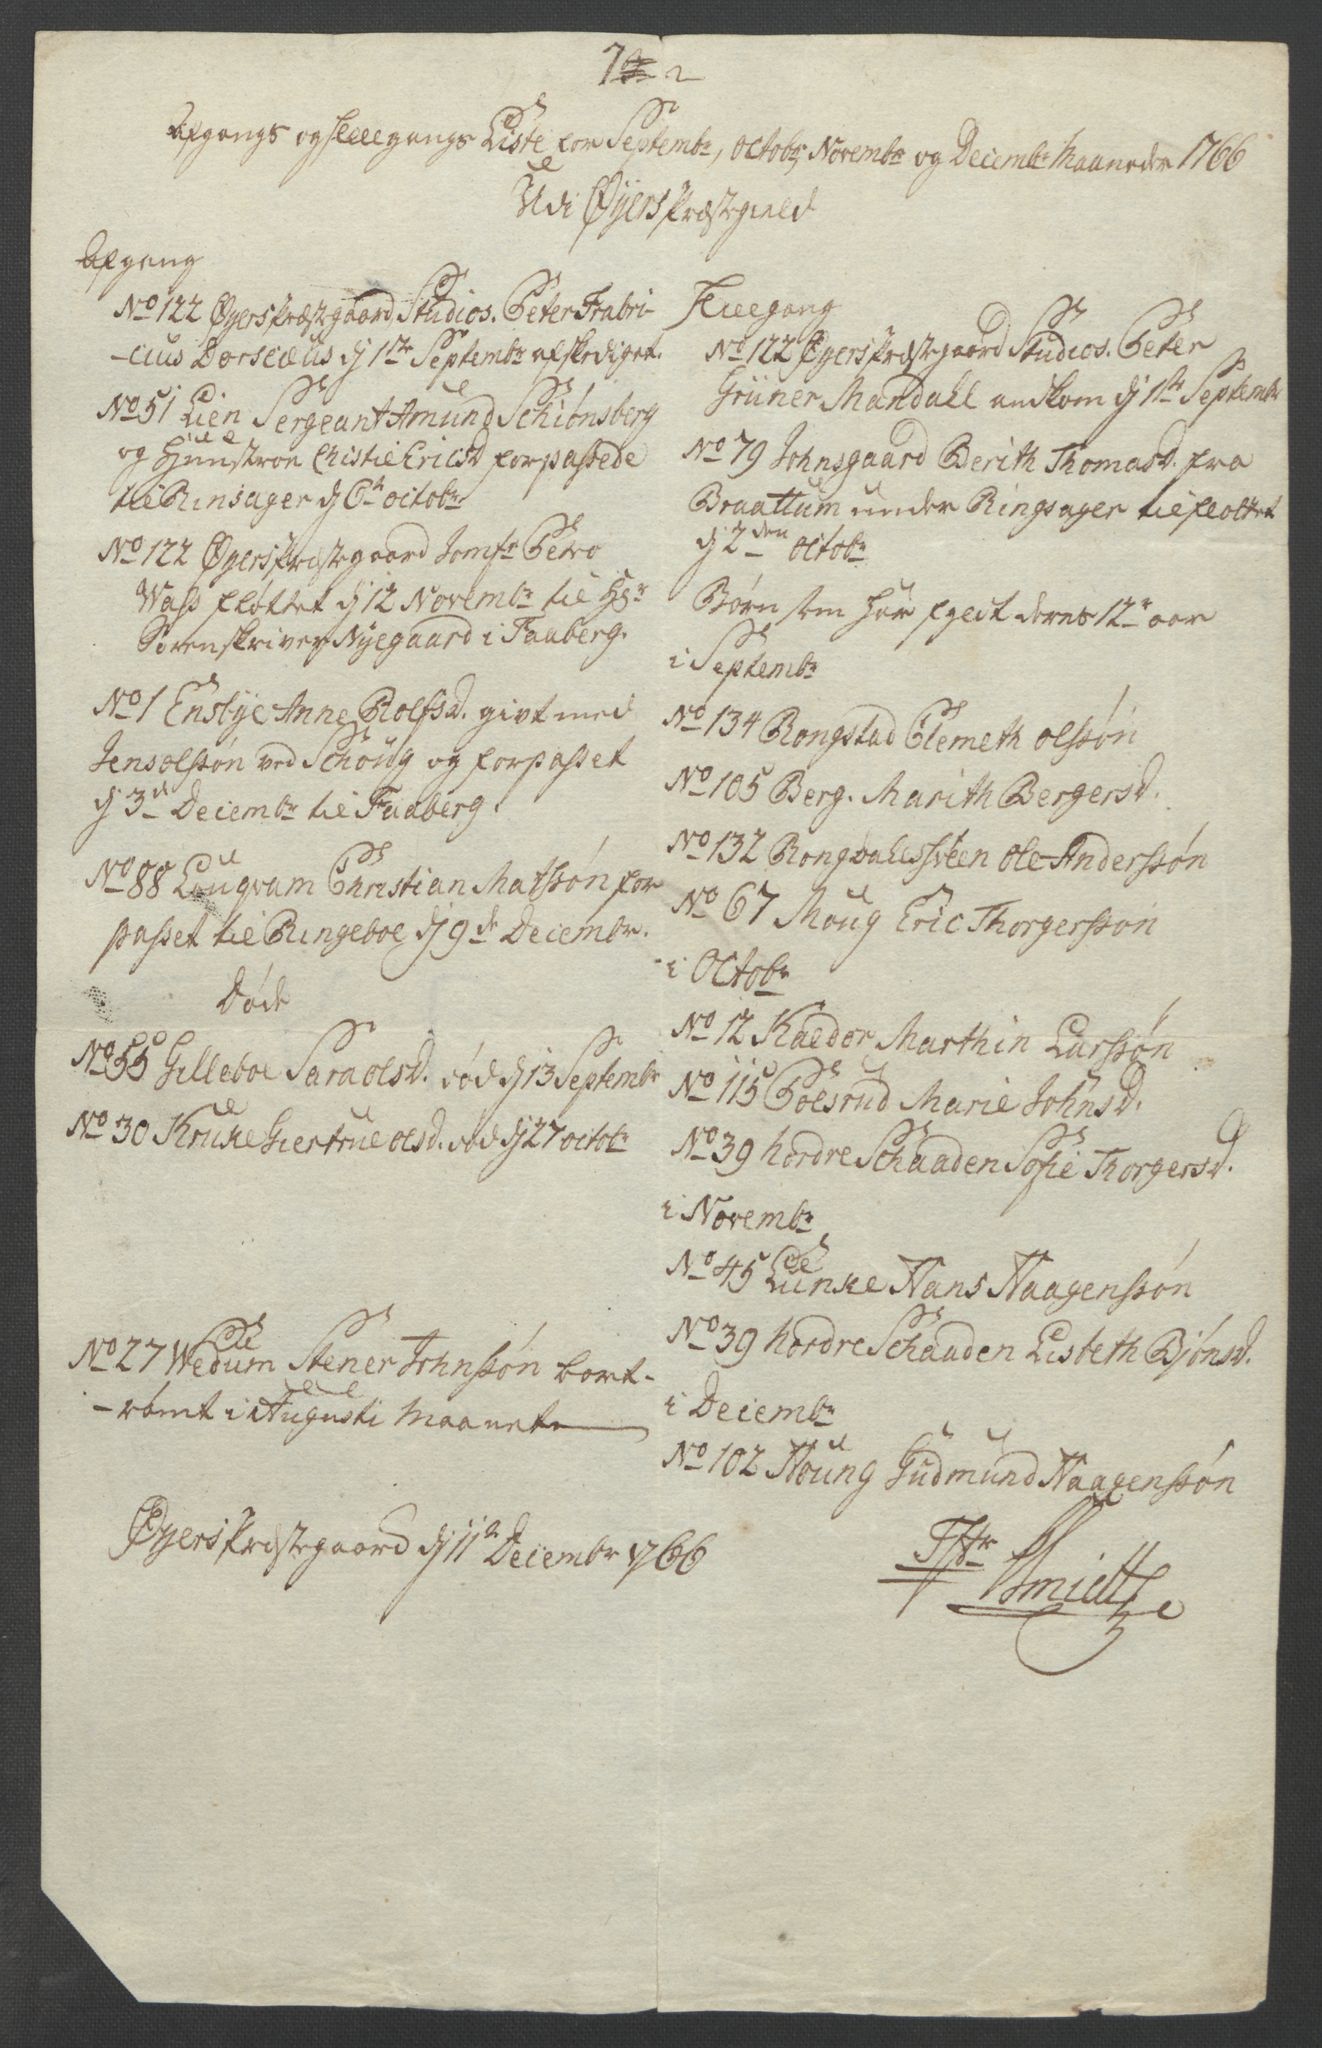 7
Afgangs og Tillegangs Liste for Septembr, Octobr, Novembr og Decembr Maaneder 1766
Udi Øyers Præstegield
Afgang
No 122 Øyers Præstegaard Studios. Peter Fabri-
-cius Dorscæus dj 1ste Septembr afskediget.
No 51 Lien Sergeant Amund Schiønsberg
og Hustroe Chistie Ericsd. forpassede
til Rinsager dj 6te Octobr
No 122 Øyers Præstegaard Jomfr Petro
Wass fløttet dj 12 Novembr til Hr
Sorenskriver Nyegaard i Faaberg.
No 1 Ensbye Anne Rolfsd. givt med
Jens Olssøn ved Schoug og forpasset
dj 3de Decembr til Faaberg.
No 88 Lougvam Christian Matssøn for
passet til Ringeboe dj 9de Decembr.
Døde
No 55 Gilleboe Sara Olsd. død dj 13 Septembr
No 30 Kruke Giertrue Olsd. død dj 27 Octobr
No 27 Wedum Stener Johnssøn bort-
-rømt i Augusti Maanet
Øyers Præstegaard dj 11te Decembr 1766
Tillegang
No 122 Øyers Præstegaard Studios. Peter
Grüner Mandall ankom dj 1ste Septembr
No 79 Johnsgaard Berith Thomasd. fra
Braattum under Ringsager tilfløttet
dj 2den Octobr
Børn som har fyldt deres 12te aar
i Septembr
No 134 Rongstad Clemeth Olssøn
No 105 Berg. Marith Bergersd.
No 132 Rongvallssveen Ole Anderssøn
No 67 Moug Eric Thorgerssøn
i Octobr
No 12 Kaldor Marthin Larssøn
No 115 Poelsrud Marie Johnsd.
No 39 Nordre Schaaden Sofie Thorgersd.
i Novembr
No 45 Lunke Hans Haagenssøn
No 39 Nordre Schaaden Lisbeth Bjønsd.
i Decembr
No 102 Houng Gudmund Haagenssøn
Smidtt